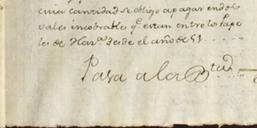 cuia cantidad se obligo a pagar en dos
vales incobrables q.e estan entre lo Pape
les de Har.da desde el año de 51
Pasa a la B.ta